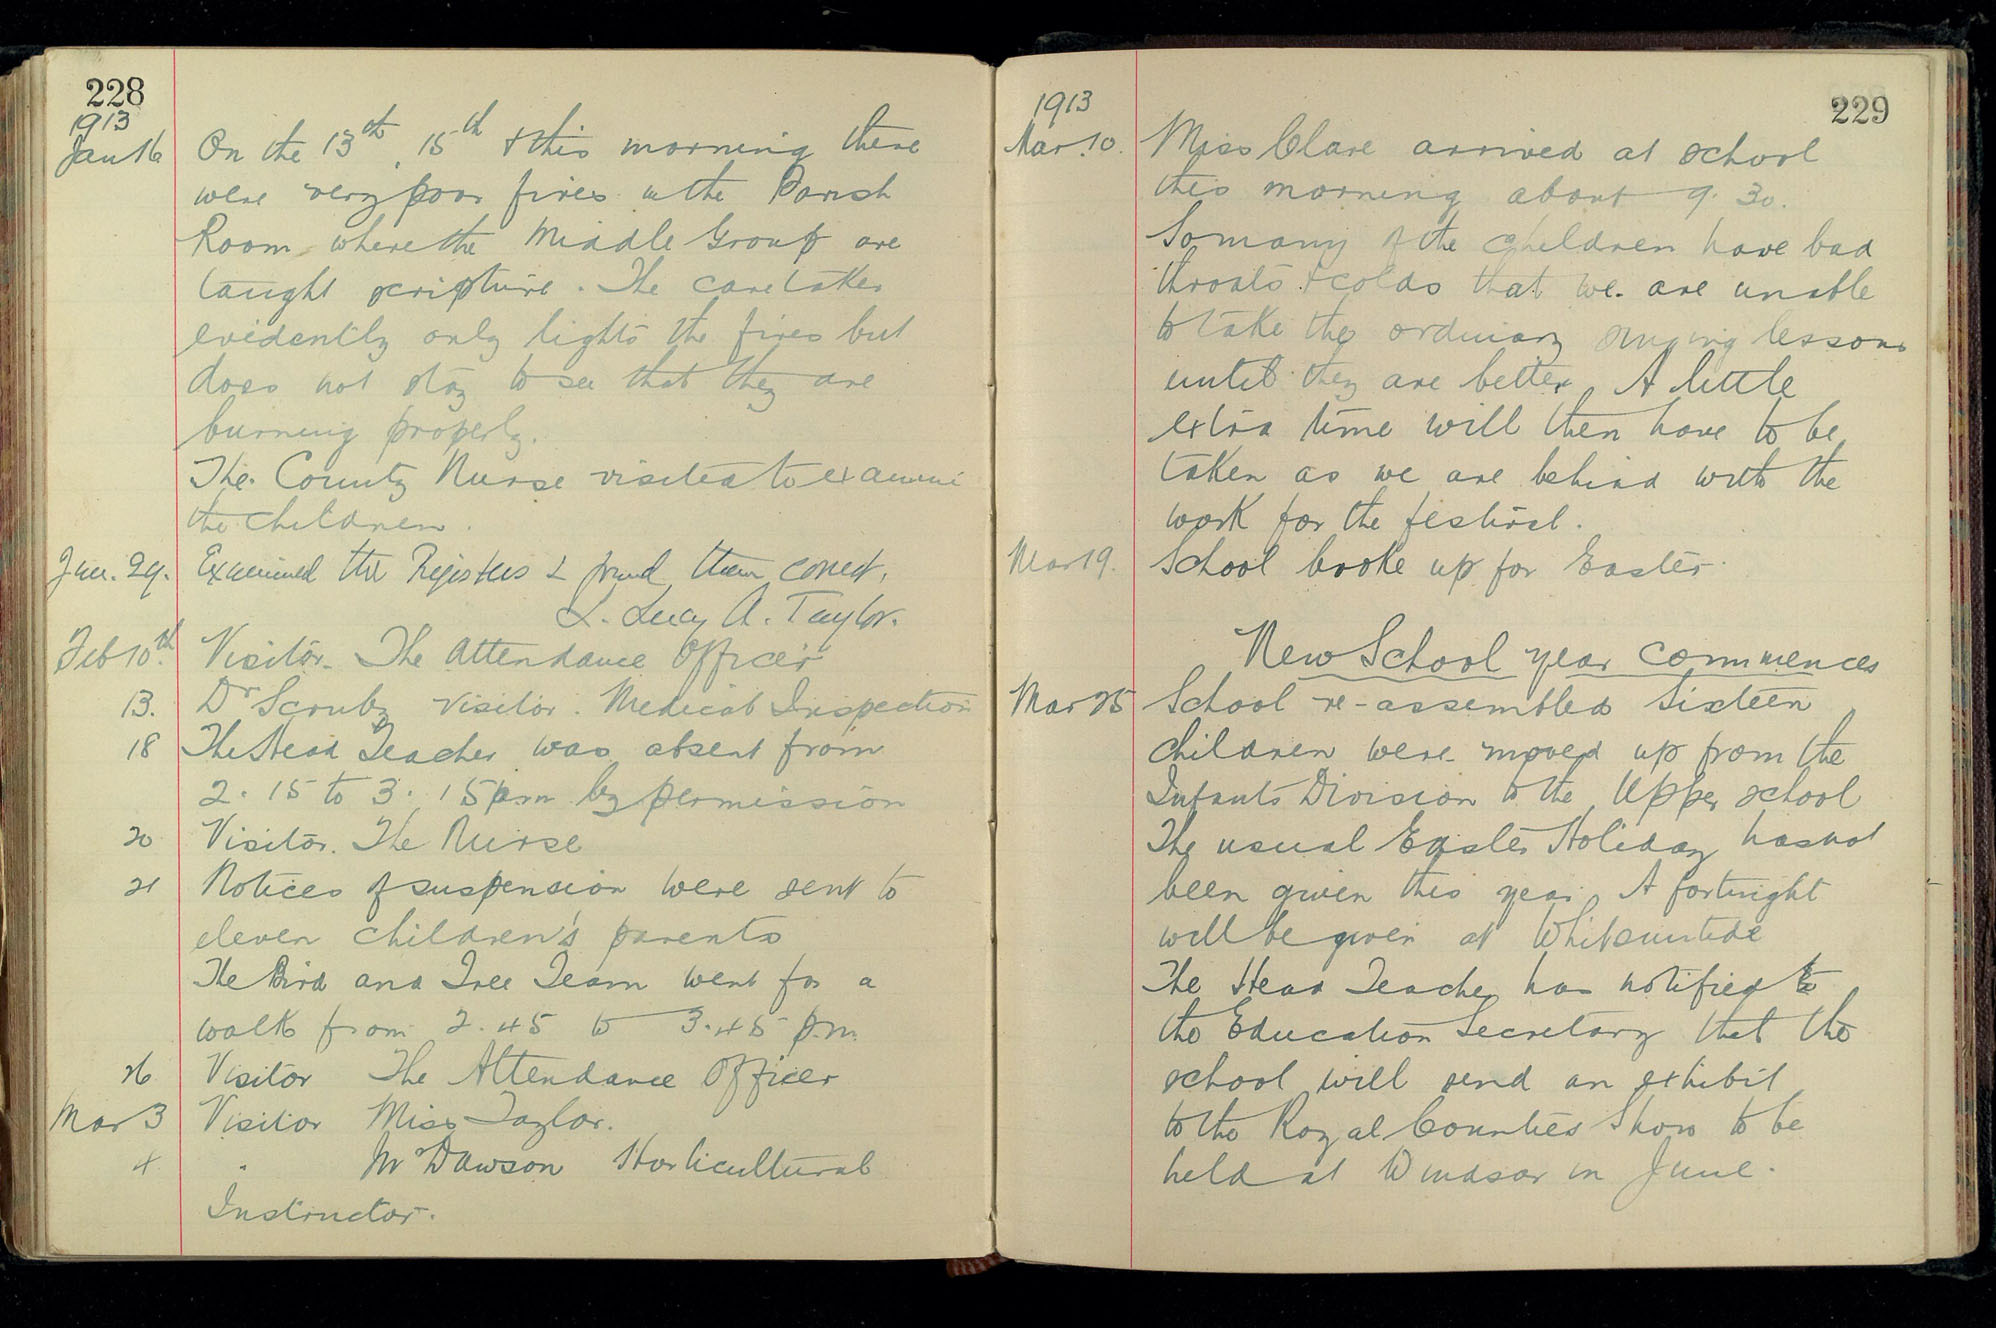 228
1913
Jan 16 On the 13th, 15th & this morning there
were very poor fires in the Parish
Room where the Middle Group are
taught scripture. The caretaker
evidently only lights the fires but
does not stay to see that they are
burning properly.
The County Nurse visited to examine
the children.
Jan. 29. Examined the Registers & found them correct.
L. Lucy A. Taylor.
Feb 10th. Visitor. The Attendance Officer
13. Dr Scruby visitor. Medical Inspection
18 The Head Teacher was absent from
2.15 to 3.15 pm by permission
20 Visitor. The Nurse
21 Notices of suspension were sent to
eleven children's parents
The Bird and Tree Team went for a
walk from 2.45 to 3.45 p.m.
26 Visitor The Attendance Officer
Mar 3 Visitor Miss Taylor.
4 " Mr Dawson Horticultural
Instructor.
229
1913
Mar. 10. Miss Clare arrived at school
this morning about 9.30.
So many of the children have bad
throats & colds that we are unable
to take the ordinary singing lessons
until they are better. A little
extra time will then have to be
taken as we are behind with the
work for the festival.
Mar 19. School broke up for Easter.
New School year commences
Mar 25 School re-assembled Sixteen
children were moved up from the
Infants Division to the Upper school
The usual Easter Holiday has not
been given this year. A fortnight
will be given at Whitsuntide
The Head Teacher has notified to
the Education Secretary that the
school will send an exhibit
to the Royal Counties Show to be
held at Windsor in June.